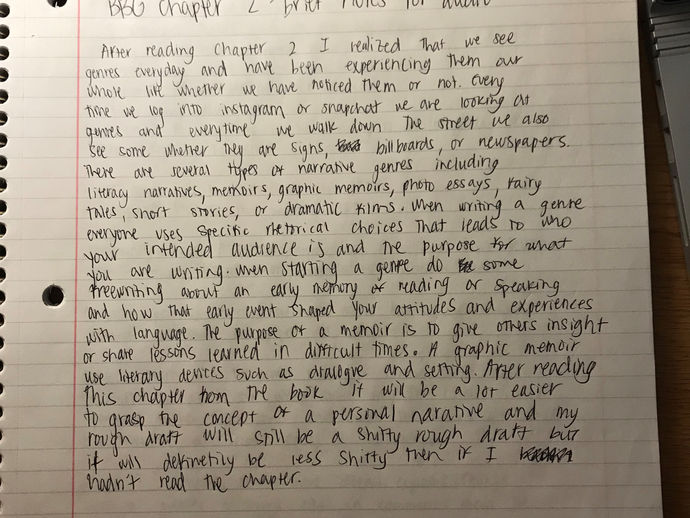 BBG Chapter 2 brief notes for audio
After reading Chapter 2 I realized that we see
genres everyday and have been experiencing them our
whole life whether we have noticed them or not. Every
time we log into instagram or snapchat we are looking at
genres and everytime we walk down the street we also
see some whether they are signs, billboards, or newspapers.
There are several types of narrative genres including
literacy narratives, memoirs, graphic memoirs, photo essays, fairy
tales, short stories, or dramatic films. When writing a genre
everyone uses specific rhetorical choices that leads to who
your intended audience is and the purpose for what
you are writing. When starting a genre do some
freewriting about an early memory of reading or speaking
and how that early event shaped your attitudes and experiences
with language. The purpose of a memoir is to give others insight
or share lessons learned in difficult times. A graphic memoir
use literary devices such as dialogue and setting. After reading
this chapter from the book it will be a lot easier
to grasp the concept of a personal narative and my
rough draft will still be a shitty rough draft but
it will definetily be less shitty then if I
hadn't read the chapter.